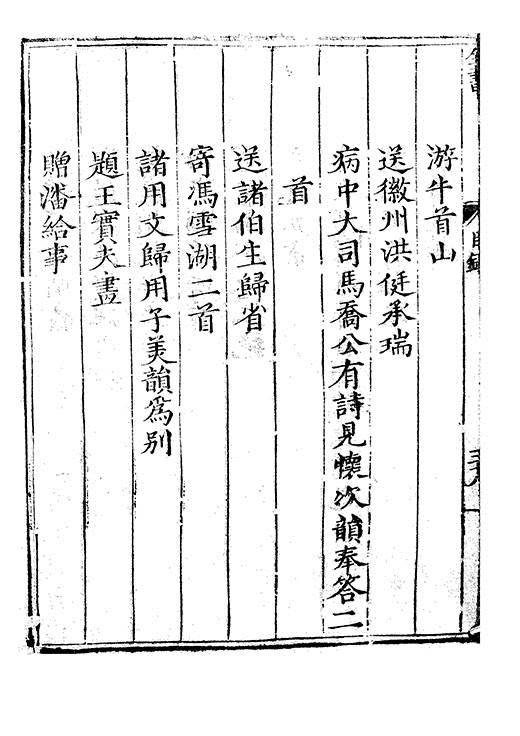 游牛首山
送徽州洪侹承瑞
病中大司馬喬公有詩見懷次韻奉答二
首
送諸伯生歸省
寄馮雪湖二首
諸用文歸用子美韻為别
題王實夫畫
贈潘給事
目録